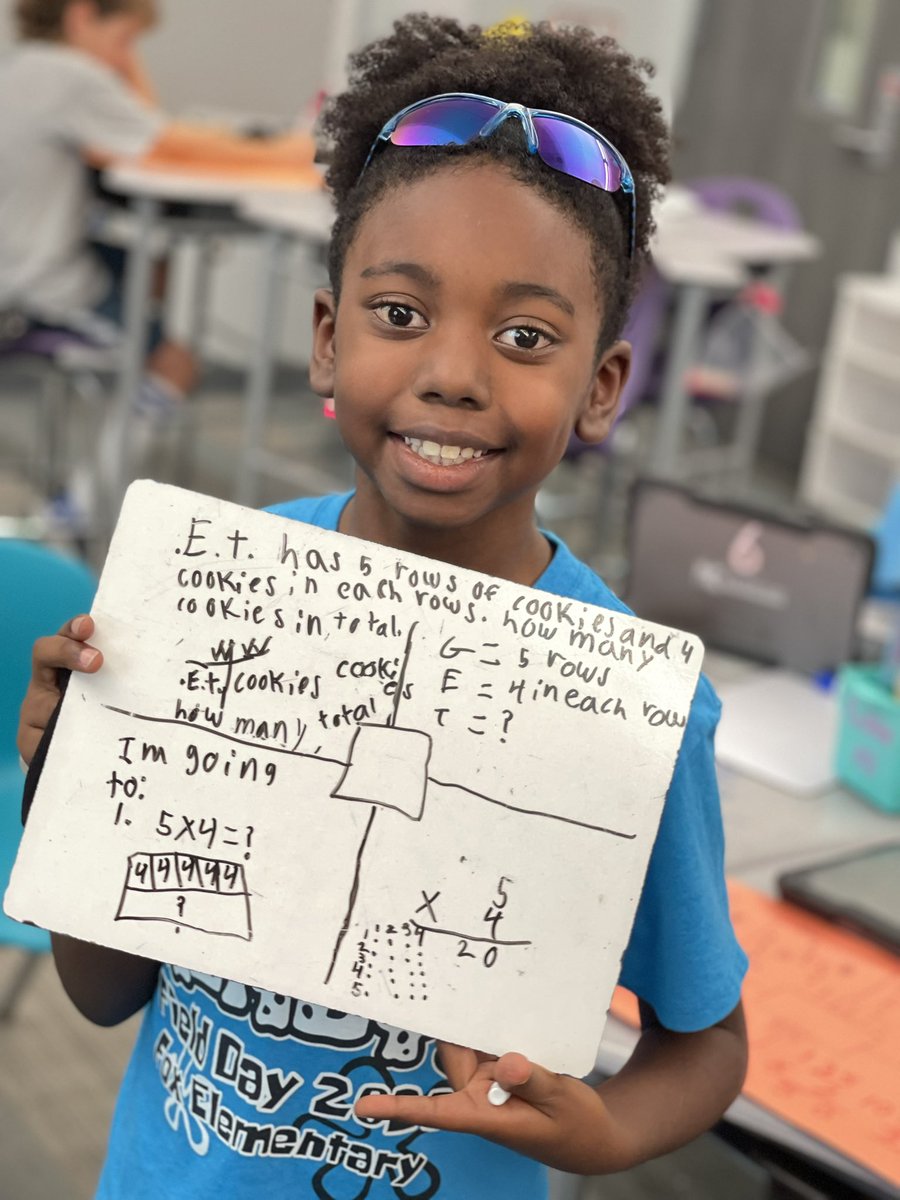 .E.t. has 5 rows of cookies and 4
cookies in each rows. how many
cookies in total.
W W
.E.t. cookies cookies
how many total
G = 5 rows
E = 4 in each row
T = ?
Im going
to:
1. 5x4=?
4 4 4 4 4
?
5
x 4
20
1 2 3 4
1.
2.
3.
4.
5.
Field Day
Fox Elementary
6